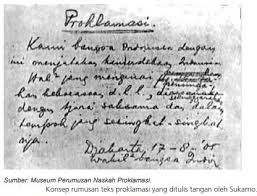 Proklamasi.
Kami bangsa Indonesia dengan
ini menjatakan kemerdekaan Indonesia.
Hal² yang mengenai
han kekoeasaan d.l.l., 
dengan tjara saksama dan dalam
tempoh yang sesingkat-singkat
nja.
Djakarta, 17-8-'05
Wakil² bangsa Indon
Sumber: Museum Perumusan Naskah Proklamasi.
Konsep rumusan teks proklamasi yang ditulis tangan oleh Sukarno.